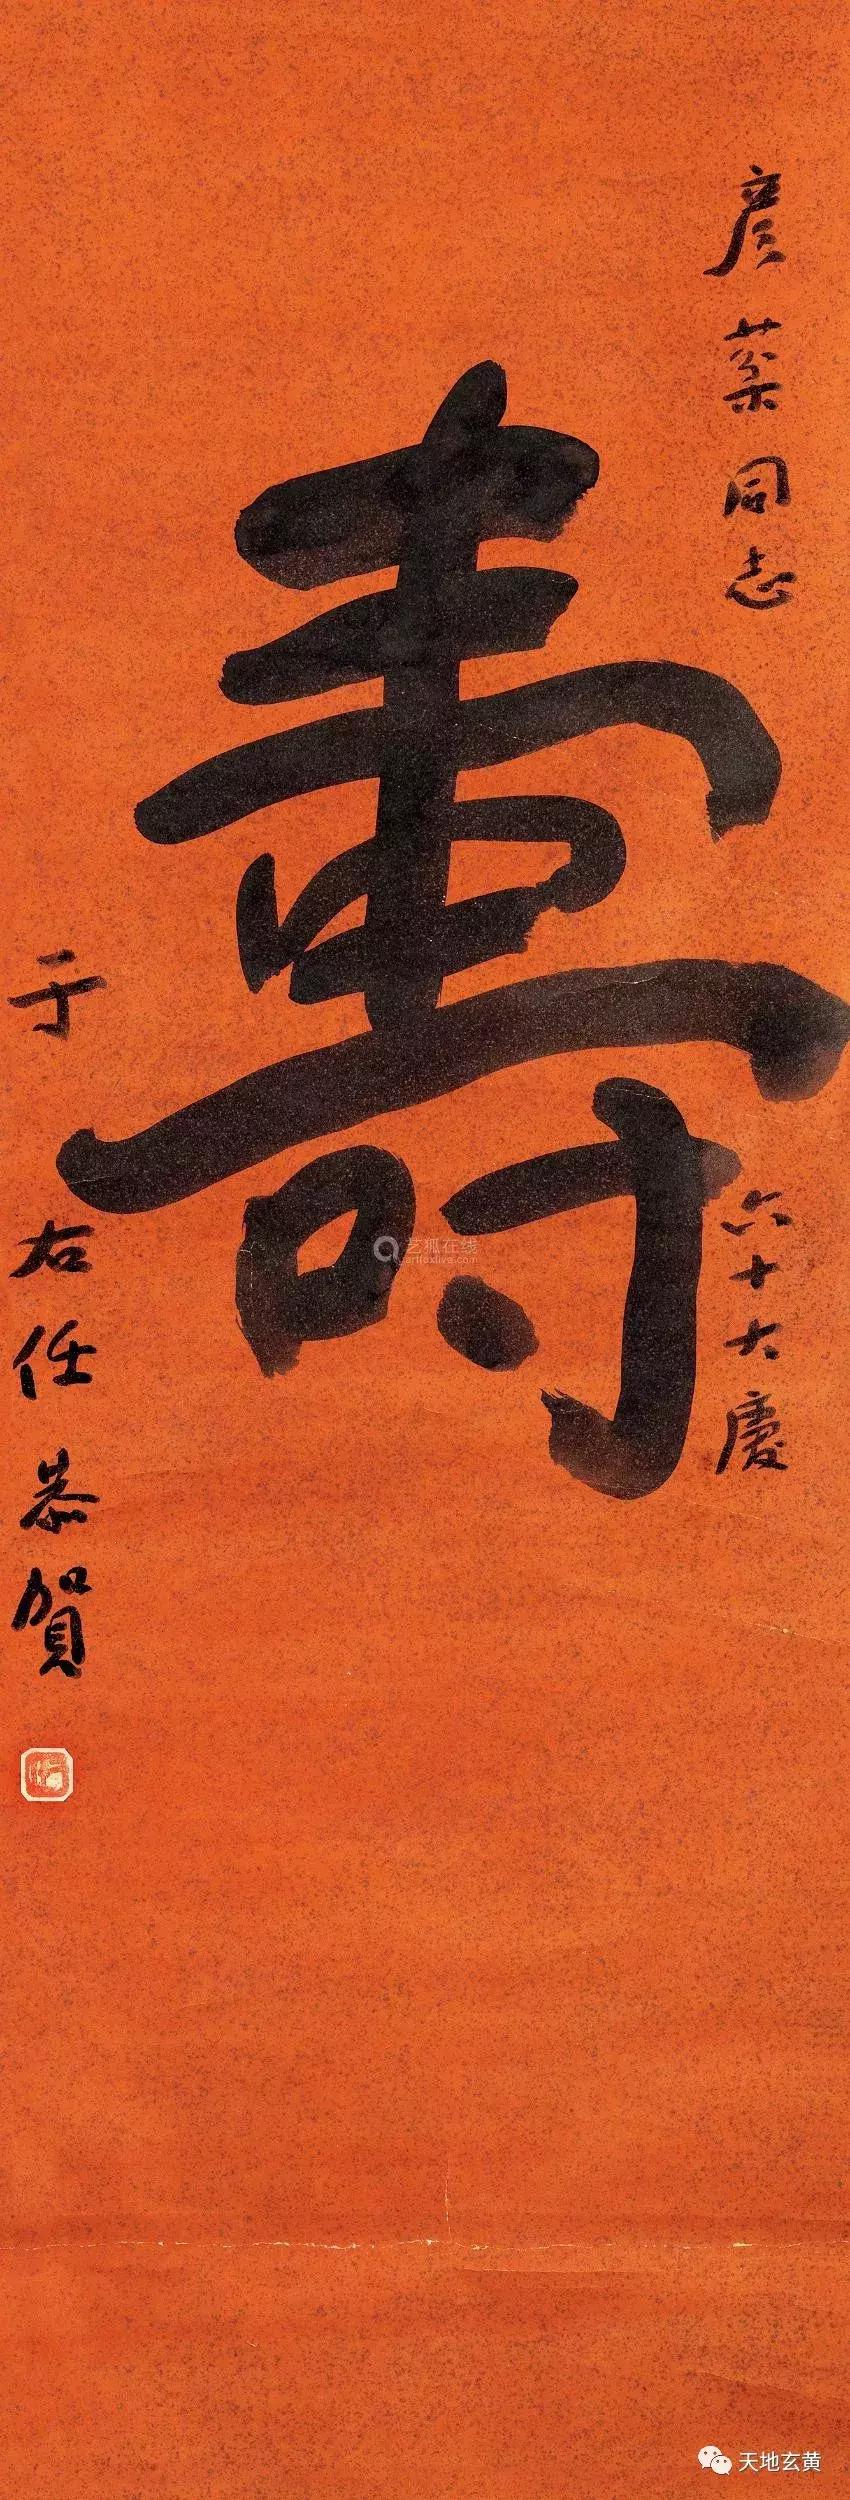 彦棻同志
六十大慶
壽
于右任恭賀
艺狐在线
artfoxlive.com
天地玄黄